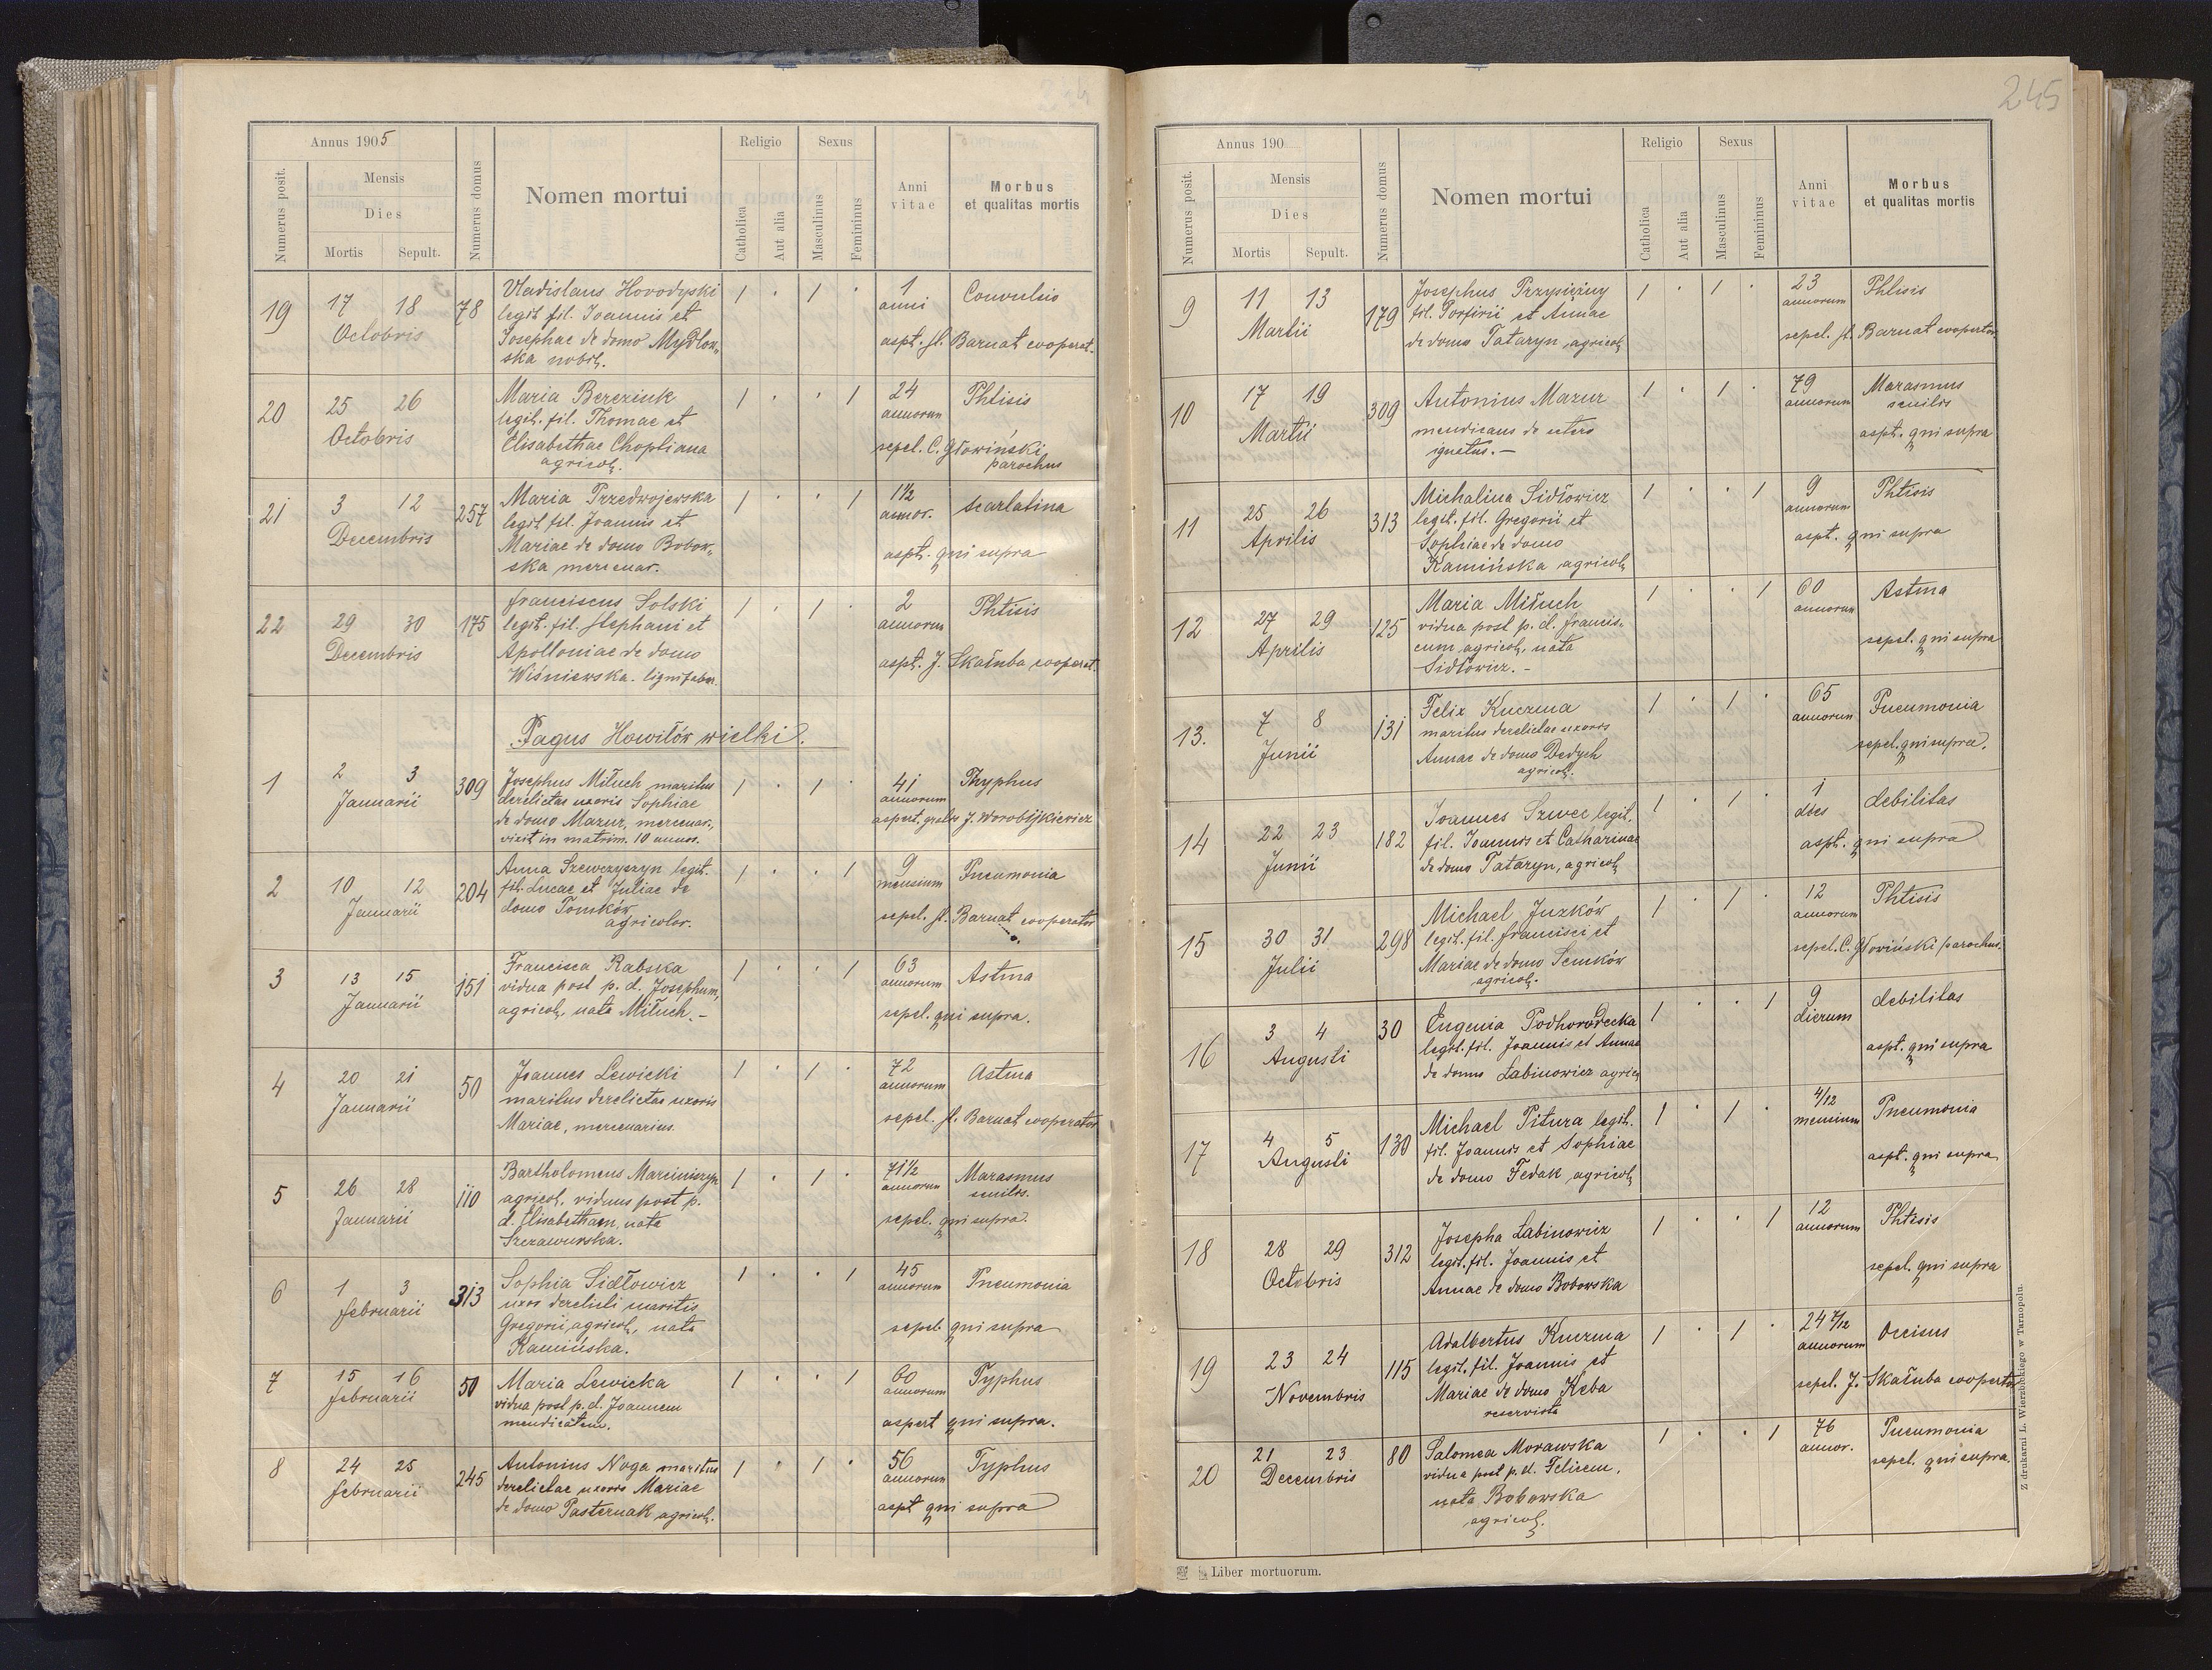 245
Annus 1905
Numerus posit.
Mensis
Dies
Mortis Sepult.
Numerus domus
Nomen mortui
Religio
Catholica
Aut alia
Sexus
Masculinus
Femininus
Anni vitae
Morbus et qualitas mortis
19 17 18 Octobris 78
Vladislaus Horodyski
legit fil. Joannis et
Josephae de domo Mydlow„
ska nobil.
1 . 1 .
1 anni Convulsio
aspt. St. Barnat cooperat.
20 25 26 Octobris
Maria Bereziuk
legit. fil. Thomae et
Elisabethae Choptiana
agricol.
1 . . 1
24 annorum Phtisis
sepel. C. Głowiński
parochus
21 3 12 Decembris 257
Maria Przedwojewska
legit fil. Joannis et
Mariae de domo Bobow„
ska mercenar.
1 . . 1
1½ annor. scarlatina
aspt. qui supra
22 29 30 Decembris 175
Franciscus Solski
legit. fil. Stephani et
Apolloniae de domo
Wiśniewska. lignifaber.
1 . 1 .
2 annorum Phtisis
aspt. J. Skałuba cooperat.
Pagus Howiłów wielki.
1 2 3 Januarii 309
Josephus Miłuch maritus
derelictae uxoris Sophiae
de domo Mazur, mercenar.,
vixit in matrim. 10 annos.
1 . 1 .
41 annorum Thyphus
aspert. J. Worobijkiewicz
2 10 12 Januarii 204
Anna Szewczyszyn legit.
fil. Lucae et Juliae de
domo Tomków
agricolar.
1 . . 1
9 mensium Pneumonia
sepel. St. Barnat cooperator
3 13 15 Januarii 151
Francisca Rabska
vidua post p. d. Josephum,
agricol, nata Miłuch. –
1 . . 1
63 annorum Astma
sepel. qui supra.
4 20 21 Januarii 50
Joannes Lewicki
maritus derelictae uxoris
Mariae, mercenarius.
1 . 1 .
72 annorum Astma
sepel. St. Barnat cooperator
5 26 28 Januarii 110
Bartholomeus Marciniszyn
agricol. viduus post p.
d. Elisabetham, nata
Szczawurska.
1 . 1 .
71½ annorum Marasmus
senilis.
sepel. qui supra.
6 1 3 Februarii 313
Sophia Sidłowicz
uxor derelicti maritis
Gregorii, agricol, nata
Kamińska.
1 . . 1
45 annorum Pneumonia
sepel. qui supra
7 15 16 Februarii 50
Maria Lewicka
vidua post p. d. Joannem
mendicatem.
1 . . 1
60 annorum Typhus
aspert qui supra.
8 24 25 Februarii 245
Antonius Noga maritus
derelictae uxoris Mariae
de domo Pasternak agricol.
1 . 1 .
56 annorum Typhus
aspt qui supra
Annus 190
Numerus posit.
Mensis
Dies
Mortis Sepult.
Numerus domus
Nomen mortui
Religio
Catholica
Aut alia
Sexus
Masculinus
Femininus
Anni vitae
Morbus et qualitas mortis
9 11 13 Martii 179
Josephus Przysiężny
fil. Porfirii et Annae
de domo Tataryn, agricol
1 . 1 .
23 annorum Phtisis
sepel. St. Barnat cooperator
10 17 19 Martii 309
Antonius Mazur
mendicans de utero
ignotus. –
1 . 1 .
79 annorum Marasmus
senilis
aspt. qui supra
11 25 26 Aprilis 313
Michalina Sidłowicz
legit. fil. Gregorii et
Sophiae de domo
Kamińska agricol
1 . . 1
9 annorum Phtisis
aspt. qui supra
12 27 29 Aprilis 125
Maria Miłuch
vidua post p. d. Francis„
cum, agricol, nata
Sidłowicz. –
1 . . 1
60 annorum Astma
sepel. qui supra
13. 7 8 Junii 131
Felix Kuczma
maritus derelictae uxoris
Annae de domo Dedych
agricol.
1 . 1 .
65 annorum Pneumonia
sepel. qui supra.
14 22 23 Junii 182
Joannes Szwec legit.
fil. Joannis et Catharinae
de domo Tataryn, agricol
1 . 1 .
1 dies debilitas
aspt. qui supra
15 30 31 Julii 298
Michael Juzków
legit. fil. Francisci et
Mariae de domo Semków
agricol.
1 . 1 .
12 annorum Phtisis
sepel. C. Głowiński parochus.
16 3 4 Augusti 30
Eugenia Podhorodecka
legit. fil. Joannis et Annae
de domo Łabinowicz agric
1 . . 1
9 dierum debilitas
aspt. qui supra
17 4 5 Augusti 130
Michael Pitura legit.
fil. Joannis et Sophiae
de domo Fedak agricol
1 . 1 .
4/12 mensium Pneumonia
aspt. qui supra
18 28 29 Octobris 312
Josepha Łabinowicz
legit. fil. Joannis et
Annae de domo Bobowska
1 . . 1
12 annorum Phtisis
sepel. qui supra
19 23 24 Novembris 115
Adalbertus Kuczma
legit. fil. Joannis et
Mariae de domo Kęba
reservista
1 . 1 .
24 7/12 annorum Occisus
sepel. J. Skałuba cooperator
20 21 23 Decembris 80
Salomea Morawska
vidua post p.d. Felicem,
nata Bobowska
agricol.
1 . . 1
76 annor. Pneumonia
sepel. qui supra.
Liber mortuorum.
Z drukarni L. Wierzbickiego w Tarnopolu.